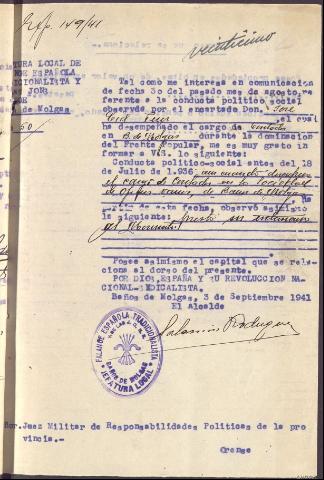 Exp. 149/41
veinticinco
TURA LOCAL DE
GE ESPAÑOLA
DICIONALISTA Y
AS JONS
de Molgas
50/
Tal como me interesa en comunicacion
de fecha 30 del pasado mes de agosto, re
ferente a la conducta politico social
observada por el encartado Don. José
Cid, el cual
ha desempeñado el cargo de Contador
B. de Molgas durante la dominacion
del Frente Popular, me es muy grato in
formar a V.S. lo siguiente:
Conducta politico-social antes del 18
de Julio de 1.936
el cargo de Contador en la sociedad
de Oficios de Baños de Molgas
, Ha
partir de esta fecha, observó asimismo
lo siguiente:
al Movimiento
Posee asimismo el capital que se rela
ciona al dorso del presente.
POR DIOS, ESPAÑA Y SU REVOLUCION NA
CIONAL-SINDICALISTA.
Baños de Molgas, 3 de Septiembre 1941
El Alcalde
FALANGE ESPAÑOLA TRADICIONALISTA
Y DE LAS J.O.N.S.
BAÑOS DE MOLGAS
JEFATURA LOCAL
Rodriguez
Sor. Juez Militar de Responsabilidades Politicas de la pro
vincia.-
Orense